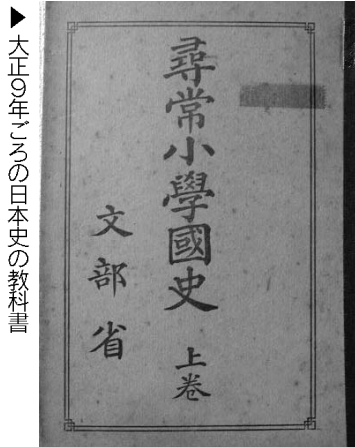 ▶大正9年ごろの日本史の教科書
尋常小學國史 上卷
文部省